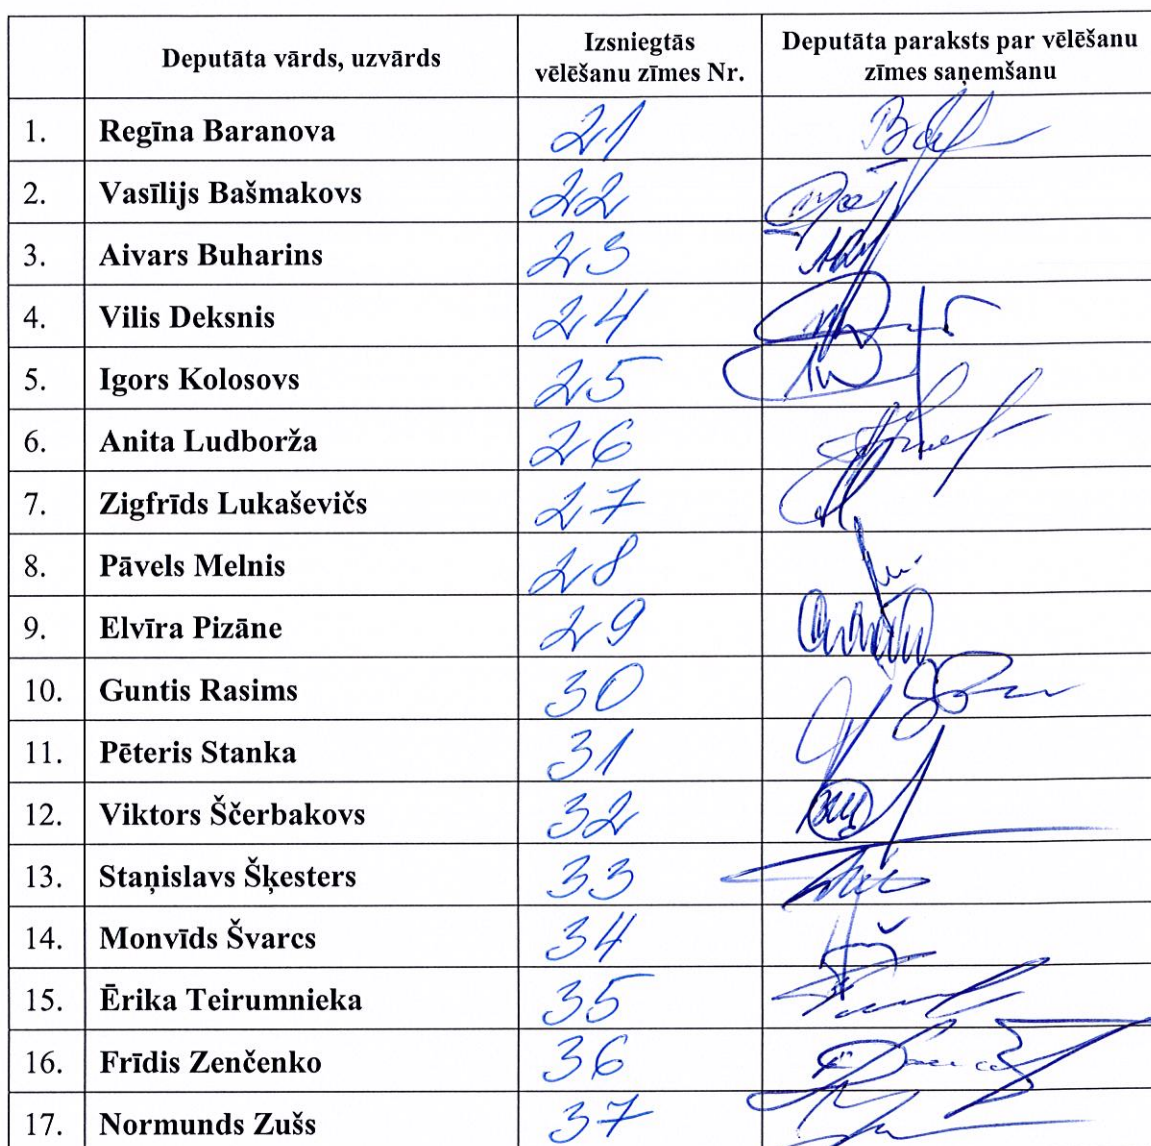 Deputāta vārds, uzvārds
Izsniegtās
vēlēšanu zīmes Nr.
Deputāta paraksts par vēlēšanu
zīmes saņemšanu
1. Regīna Baranova 21
2. Vasīlijs Bašmakovs 22
3. Aivars Buharins 23
4. Vilis Deksnis 24
5. Igors Kolosovs 25
6. Anita Ludborža 26
7. Zigfrīds Lukaševičs 27
8. Pāvels Melnis 28
9. Elvīra Pizāne 29
10. Guntis Rasims 30
11. Pēteris Stanka 31
12. Viktors Ščerbakovs 32
13. Staņislavs Šķesters 33
14. Monvīds Švarcs 34
15. Ērika Teirumnieka 35
16. Frīdis Zenčenko 36
17. Normunds Zušs 37